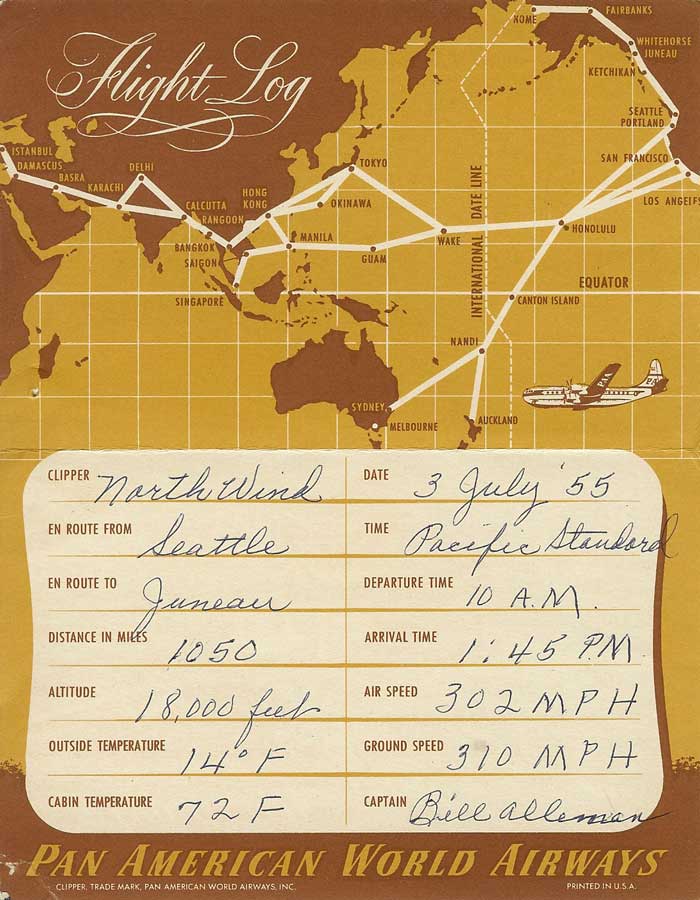 Flight Log
NOME
FAIRBANKS
WHITEHORSE
JUNEAU
KETCHIKAN
SEATTLE
PORTLAND
SAN FRANCISCO
LOS ANGELES
ISTANBUL
DAMASCUS
BASRA
KARACHI
DELHI
CALCUTTA
RANGOON
HONG
KONG
TOKYO
OKINAWA
BANGKOK
SAIGON
MANILA
GUAM
WAKE
HONOLULU
SINGAPORE
INTERNATIONAL DATE LINE
EQUATOR
CANTON ISLAND
NANDI
SYDNEY
MELBOURNE
AUCKLAND
PAA
CLIPPER North Wind
DATE 3 July '55
EN ROUTE FROM Seattle
TIME Pacific Standard
EN ROUTE TO Juneau
DEPARTURE TIME 10 A.M.
DISTANCE IN MILES 1050
ARRIVAL TIME 1:45 P.M.
ALTITUDE 18,000 feet
AIR SPEED 302 MPH
OUTSIDE TEMPERATURE 14° F
GROUND SPEED 310 MPH
CABIN TEMPERATURE 72 F
CAPTAIN Bill Alleman
PAN AMERICAN WORLD AIRWAYS
CLIPPER, TRADE MARK, PAN AMERICAN WORLD AIRWAYS, INC.
PRINTED IN U.S.A.